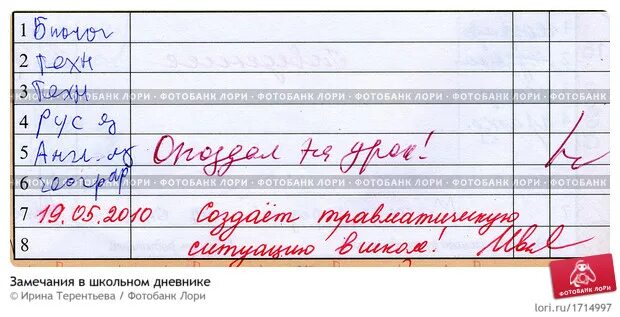 1 Биолог
2 Техн
3 Техн
ФОТОБАНК ЛОРИ · ФОТОБАНК ЛОРИ · ФОТОБАНК ЛОРИ · ФОТОБАНК ЛОРИ
4 Рус яз
5 Англ. яз Опоздал на урок!
6 географ
ФОТОБАНК ЛОРИ · ФОТОБАНК ЛОРИ · ФОТОБАНК ЛОРИ · ФОТОБАНК ЛОРИ
7 19.05.2010 Создаёт травматическую
8 ситуацию в школе!
Замечания в школьном дневнике
© Ирина Терентьева / Фотобанк Лори
ФОТОБАНК ЛОРИ
lori.ru/1714997